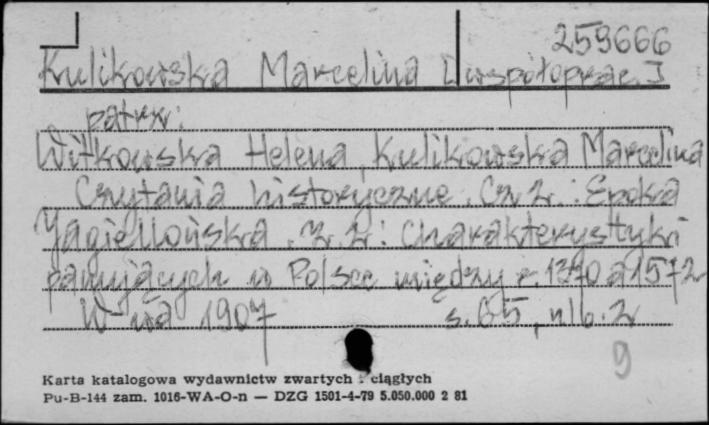 259666
Kulikowska Marcelina [współoprac.]
patrz:
Witkowska Helena, Kulikowska Marcelina
Czytania historyczne. Cz. 2.: Epoka
Jagiellońska. z. 2: Charakterystyki
panujących w Polsce między r. 1370 a 1572
W-wa 1907 s. 65, nlb. 2
9
Karta katalogowa wydawnictw zwartych i ciągłych
Pu-B-144 zam. 1016-WA-O-n — DZG 1501-4-79 5.050.000 2 81